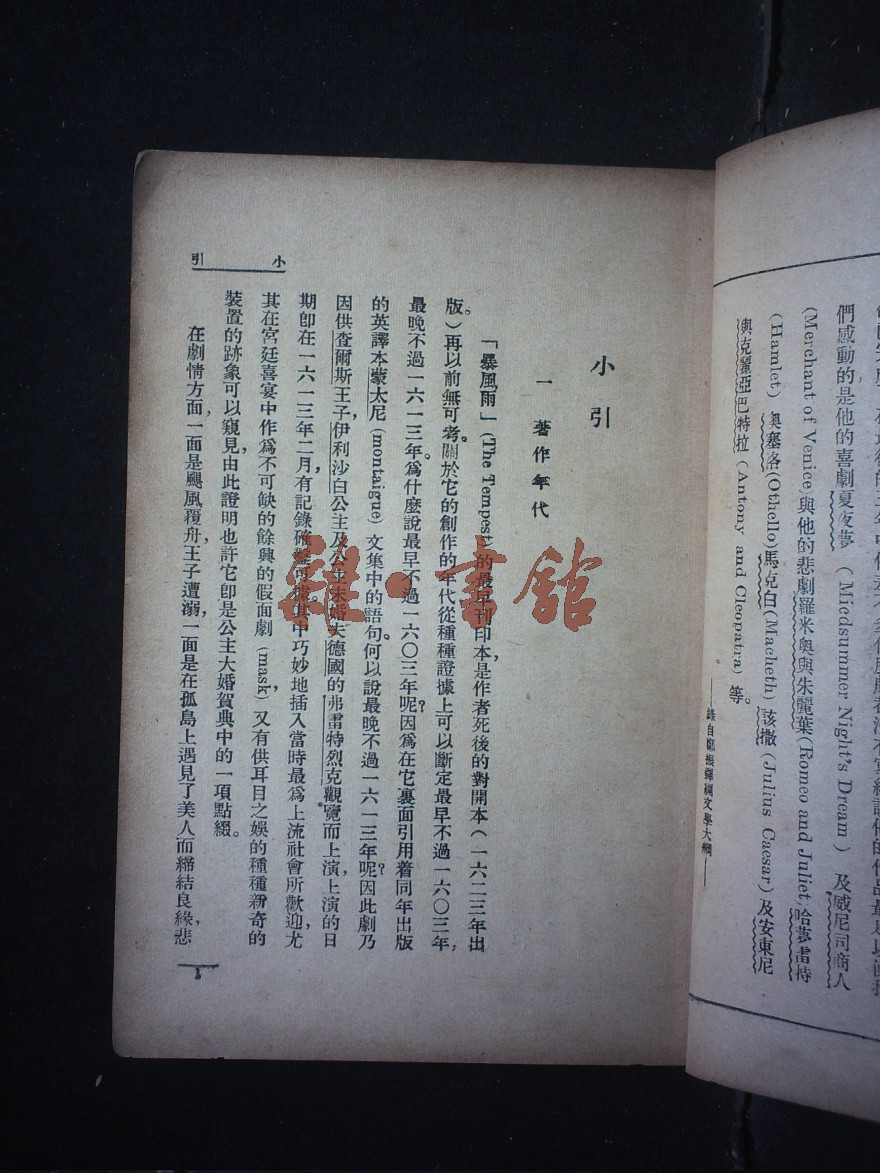 們感動的是他的喜劇夏夜夢（Miedsummer Night's Dream）及威尼司商人
（Merchant of Venice）與他的悲劇羅米奧與朱麗葉（Romeo and Juliet）哈夢雷特
（Hamlet）奧塞洛（Othello）馬克白（Macheth）該撒（Julius Caesar）及安東尼
與克麗亞巴特拉（Antony and Cleopatra）等。
小引
一 著作年代
「暴風雨」（The Tempest）的最早刊印本，是作者死後的對開本（一六二三年出
版。）再以前無可考。關於它的創作的年代從種種證據上可以斷定最早不過一六〇三年，
最晚不過一六一三年。爲什麼說最早不過一六〇三年呢？因爲在它裏面引用着同年出版
的英譯本蒙太尼（montaigue）文集中的語句。何以說最晚不過一六一三年呢？因此劇乃
因供查爾斯王子，伊利沙白公主及公主未婚夫德國的弗雷特烈克觀覽而上演，上演的日
期卽在一六一三年二月，有記錄確鑿可據。其中巧妙地插入當時最爲上流社會所歡迎，尤
其在宮廷喜宴中作爲不可缺的餘興的假面劇（mask），又有供耳目之娛的種種新奇的
裝置的跡象可以窺見，由此證明也許它卽是公主大婚賀典中的一項點綴。
在劇情方面，一面是颶風覆舟，王子遭溺，一面是在孤島上遇見了美人而締結良緣，悲
小引
1
雜·書館